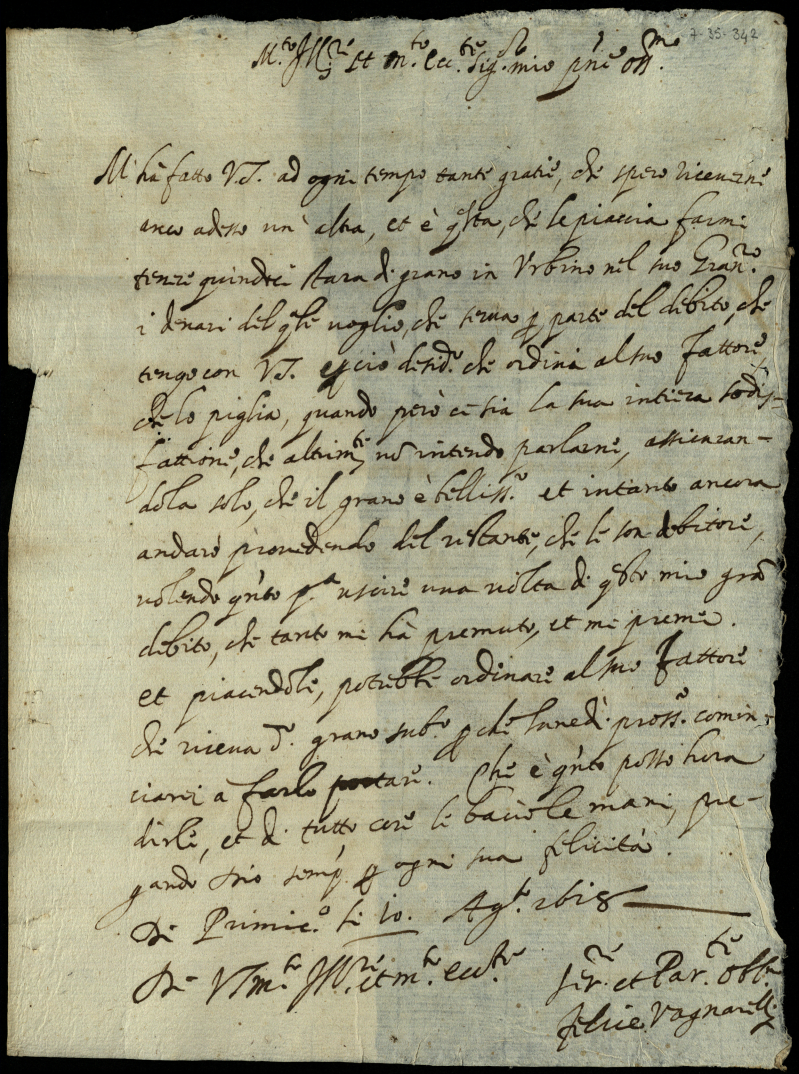 7-35-342
M.to Ill.re et m.to ecc.te Sig.r mio p.ne oss.mo
Mi hà fatto V.S. ad ogni tempo tante gratie, che spero riceverne
anco adesso un' altra, et è q.sta, che le piaccia farmi
tenere quindeci stara di grano in Urbino nel suo Gran.ro
i denari del q.le voglio, che serva p parte del debito, che
tengo con V.S. e p ciò desid.o che ordini al suo fattore,
che lo piglia, quando però ci sia la sua intiera sodis-
fattione, che altrim.te nõ intendo parlarne, assicuran-
dola solo, che il grano è belliss.o et intanto ancora
andarò provedendo del restante, che le son debitore,
volendo q.nto p.a uscire una volta di q.sto mio grã
debito, che tanto mi hà premuto, et mi preme.
et piacendole, potrebbe ordinare al suo fattore
che riceva d.o grano sub.o p che lunedì pross.o comin-
ciarei à farlo portare. Che è q.nto posso hora
dirle, et di tutto core le bacio le mani, pre-
gando Dio semp. p ogni sua felicità.
Di Primic.o li 10. Ag.to 1618
Di V.S. m.to Ill.re et m.to ecc.te
Ser.re et Par.te Obl.
Felice Vagnarelli